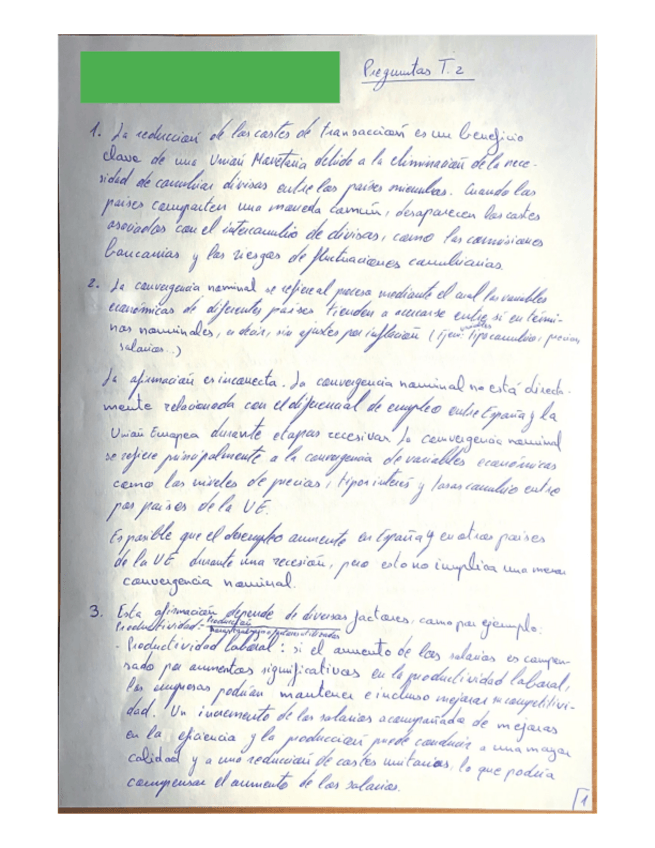 Preguntas T.2
1. La reducción de los costes de transacción es un beneficio
clave de una Unión Monetaria debido a la eliminación de la nece-
sidad de cambiar divisas entre los países miembros. Cuando los
países comparten una moneda común, desaparecen los costes
asociados con el intercambio de divisas, como las comisiones
bancarias y los riesgos de fluctuaciones cambiarias.
2. La convergencia nominal se refiere al proceso mediante el cual las variables
económicas de diferentes países tienden a acercarse entre sí en térmi-
nos nominales, es decir, sin ajustes por inflación (Ejem: Tipo cambio, precios,
salarios...)
La afirmación es incorrecta. La convergencia nominal no está directa-
mente relacionada con el diferencial de empleo entre España y la
Unión Europea durante etapas recesivas. La convergencia nominal
se refiere principalmente a la convergencia de variables económicas
como los niveles de precios, tipos interés y tasas cambio entre
por países de la UE.
Es posible que el desempleo aumente en España y en otros países
de la UE durante una recesión, pero esto no implica una menor
convergencia nominal.
3. Esta afirmación depende de diversos factores, como por ejemplo:
Productividad = Producción
- Productividad laboral: si el aumento de los salarios es compen-
sado por aumentos significativos en la productividad laboral,
las empresas podrían mantener e incluso mejorar su competitivi-
dad. Un incremento de los salarios acompañado de mejoras
en la eficiencia y la producción puede conducir a una mayor
calidad y a una reducción de costes unitarios, lo que podría
compensar el aumento de los salarios.
1